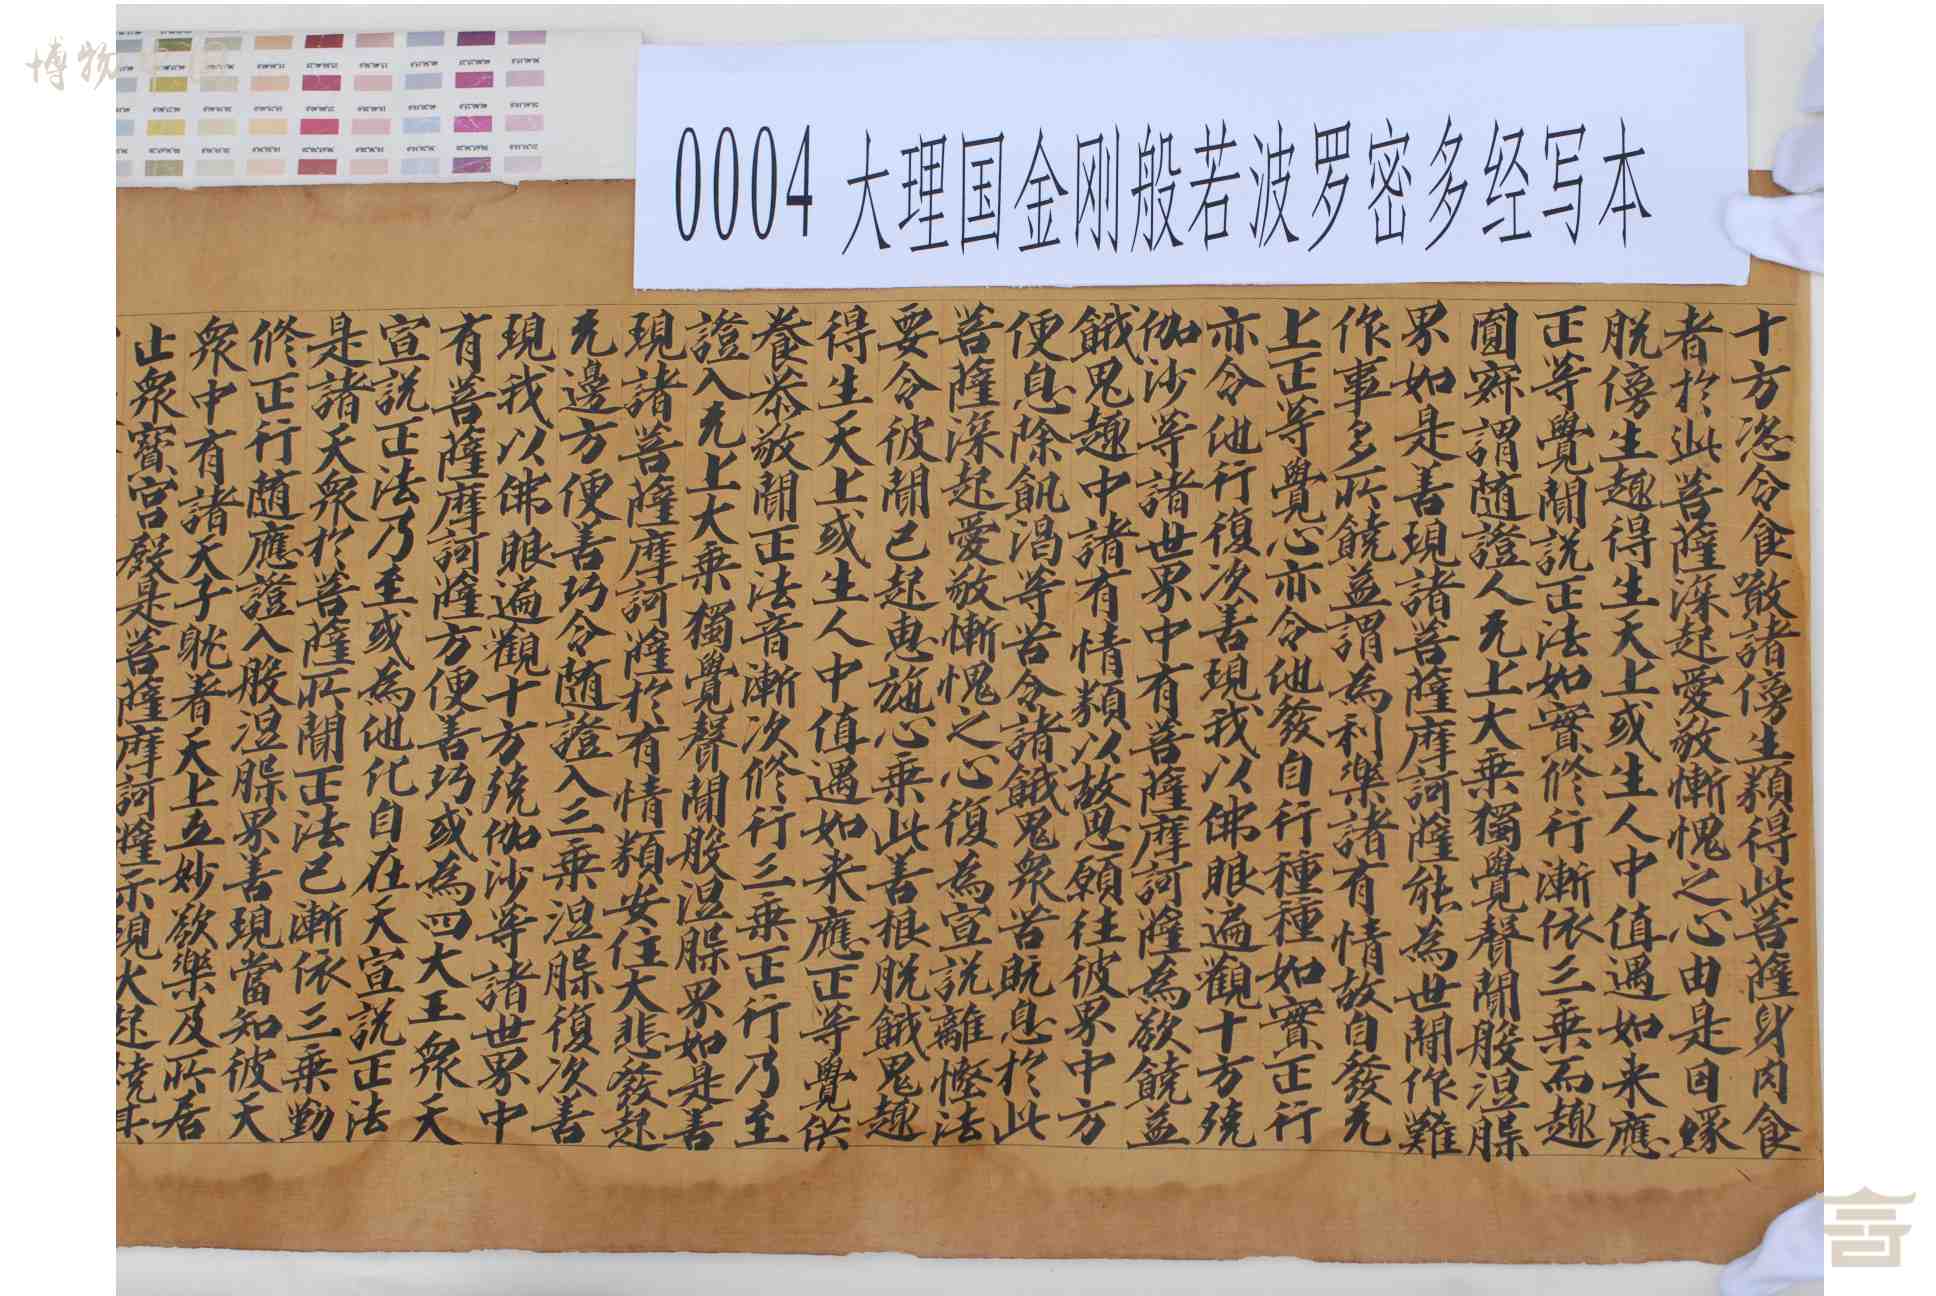 0004 大理国金刚般若波罗密多经写本
十方恣令食噉諸傍生類得此菩薩身肉食
者於此菩薩深起愛敬慚愧之心由是因緣
脱傍生趣得生天上或生人中值遇如来應
正等覺聞説正法如實修行漸依三乘而趣
圓寂謂随證入无上大乘獨覺聲聞般涅槃
界如是善現諸菩薩摩訶薩能為世間作難
作事多所饒益謂為利樂諸有情故自發无
上正等覺心亦令他發自行種種如實正行
亦令他行復次善現我以佛眼遍觀十方殑
伽沙等諸世界中有菩薩摩訶薩為欲饒益
餓鬼趣中諸有情類以故思願往彼界中方
便息除飢渴等苦令諸餓鬼眾苦既息於此
菩薩深起愛敬慚愧之心復為宣説離慳法
要令彼聞已起惠施心乘此善根脱餓鬼趣
得生天上或生人中值遇如来應正等覺供
養恭敬聞正法音漸次修行三乘正行乃至
證入无上大乘獨覺聲聞般涅槃界如是善
現諸菩薩摩訶薩於有情類安住大悲發起
无邊方便善巧令随證入三乘涅槃復次善
現我以佛眼遍觀十方殑伽沙等諸世界中
有菩薩摩訶薩方便善巧或為四大王眾天
宣説正法乃至或為他化自在天宣説正法
是諸天眾於菩薩所聞正法已漸依三乘勤
修正行随應證入般涅槃界善現當知彼天
眾中有諸天子躭著天上五妙欲樂及所居
止眾寶宮殿是菩薩摩訶薩示現火起燒其